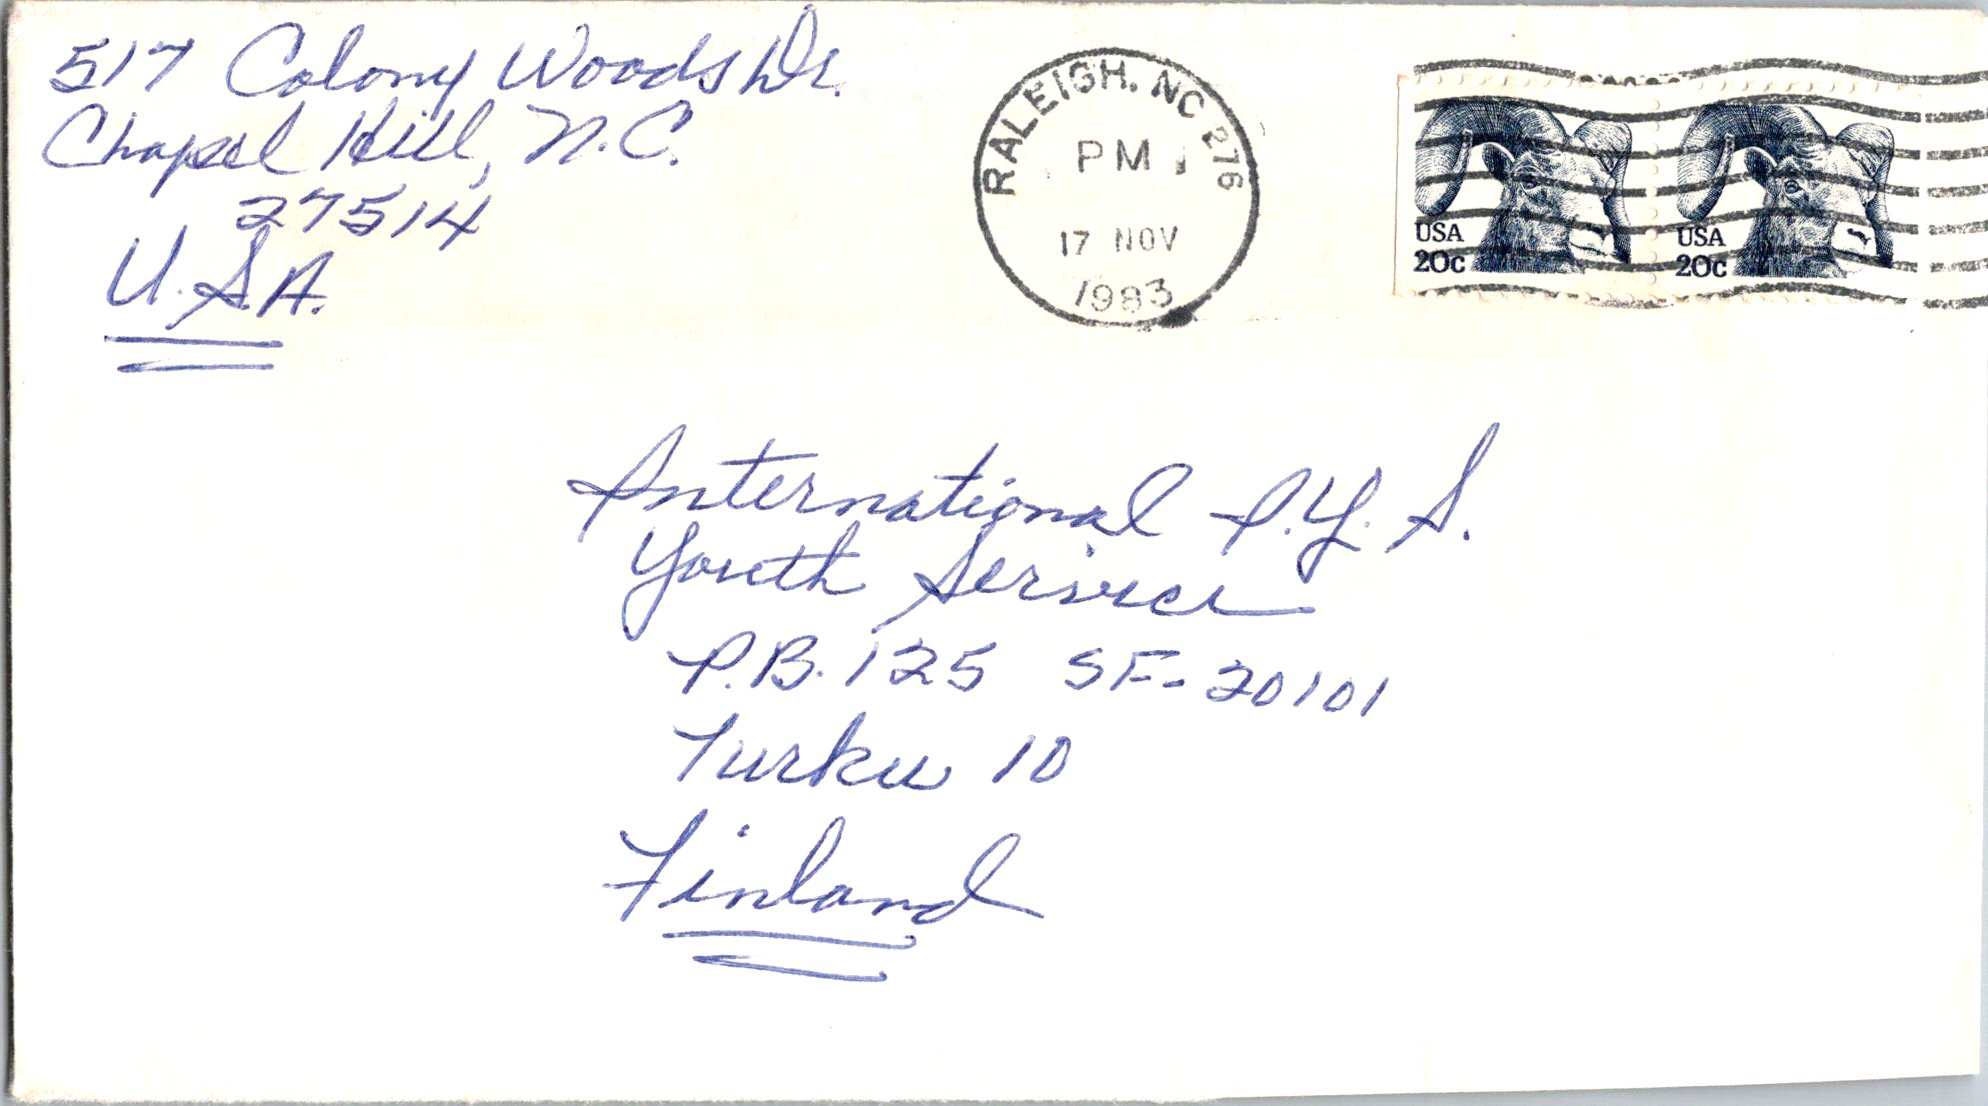 517 Colony Woods Dr.
Chapel Hill, N.C.
27514
U.S.A.
RALEIGH, NC 276
PM
17 NOV
1983
USA
20c
USA
20c
International P.Y.S.
Youth Service
P.B. 125 SF-20101
Turku 10
Finland